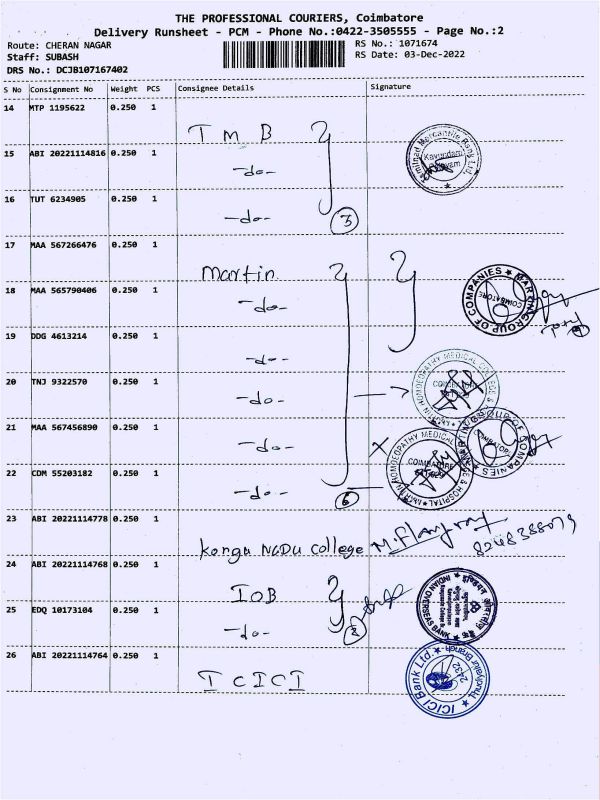 THE PROFESSIONAL COURIERS, Coimbatore
Delivery Runsheet - PCM - Phone No.:0422-3505555 - Page No.:2
Route: CHERAN NAGAR
Staff: SUBASH
DRS No.: DCJB107167402
RS No.: 1071674
RS Date: 03-Dec-2022
S No Consignment No Weight PCS Consignee Details Signature
14 MTP 1195622 0.250 1
T M B
15 ABI 20221114816 0.250 1
-do-
16 TUT 6234905 0.250 1
-do-
3
17 MAA 567266476 0.250 1
Martin
18 MAA 565790406 0.250 1
-do-
19 DDG 4613214 0.250 1
-do-
20 TNJ 9322570 0.250 1
-do-
21 MAA 567456890 0.250 1
-do-
22 CDM 55203182 0.250 1
-do-
6
23 ABI 20221114778 0.250 1
kongu NGDU college
24 ABI 20221114768 0.250 1
IOB
25 EDQ 10173104 0.250 1
-do-
2
26 ABI 20221114764 0.250 1
ICICI
MARTIN GROUP OF COMPANIES
COIMBATORE
INDIAN OVERSEAS BANK
ICICI Bank Ltd.